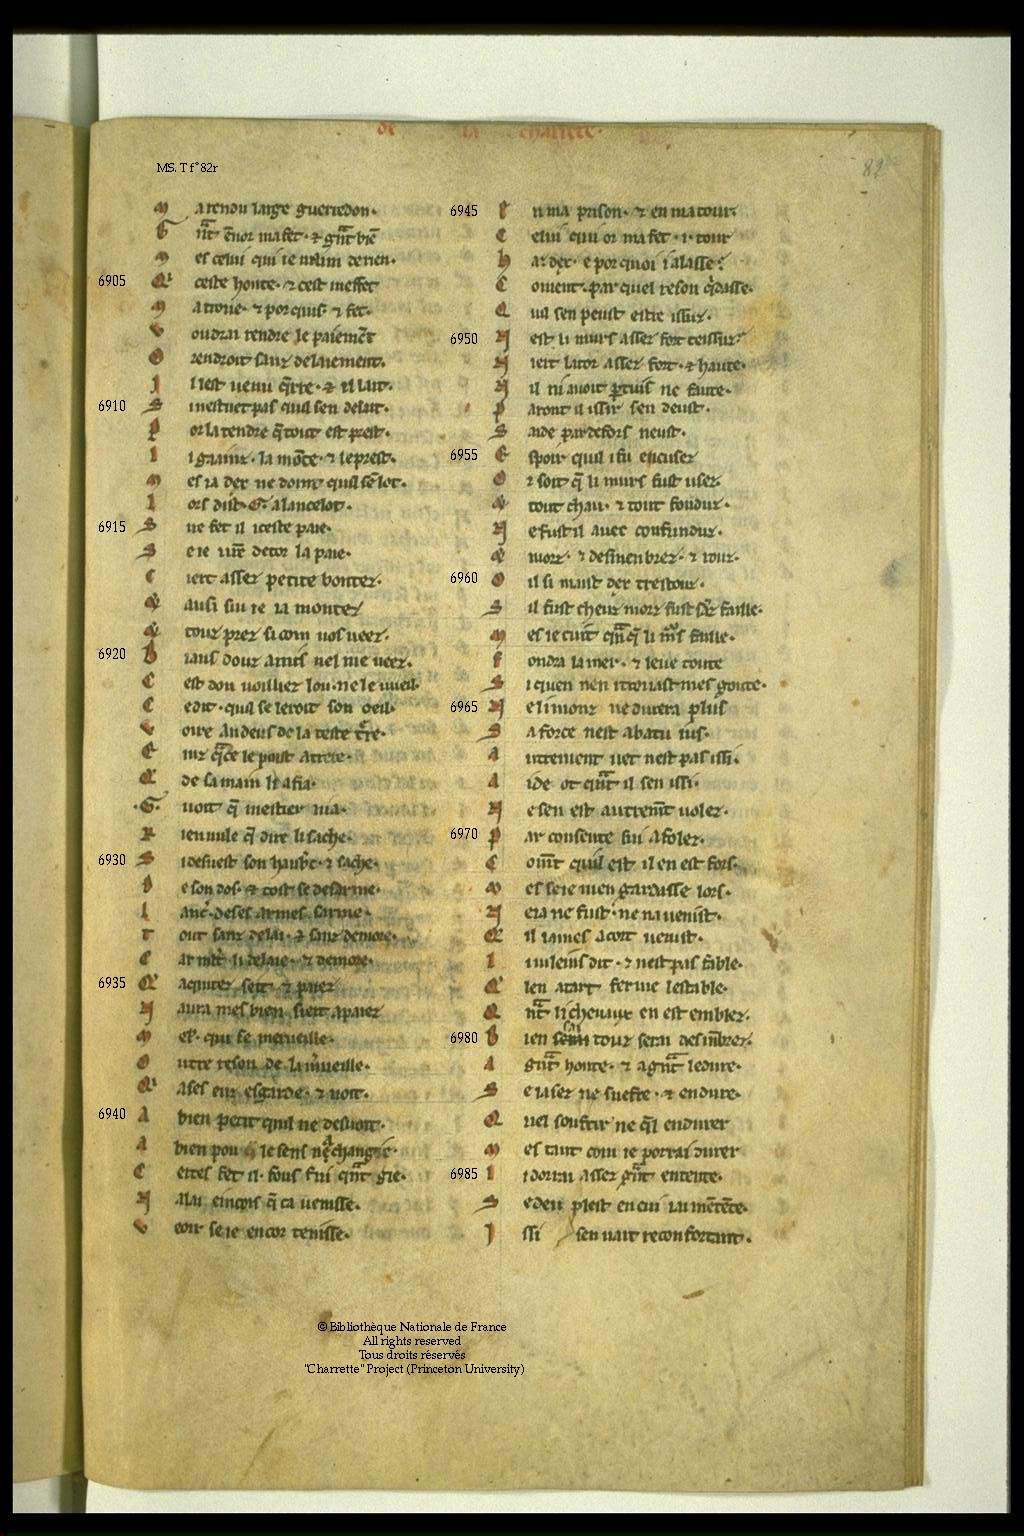 de la charrete.
MS. T f° 82r
82
M a rendu large guerredon.
G nt enor ma fet. ⁊ gnt bie
M es celui qui ie
6905 Q ceste honte. ⁊ cest meffet
M a troue. ⁊ porquis. ⁊ fet.
V oudrai rendre le paiemet
O rendroit sanz delaiement.
I l est uenu qrre. ⁊ il lait.
6910 S mestuet pas quil sen delait.
P or latendre q tout est prest.
L
M es ia dex ne doint quil se lot.
L ors dist .G. a lancelot.
6915 S ire fet il iceste paie.
S e ie
C iert assez petite bontez.
Q ausi sui ie ia montez
Q touz prez si com uos ueez.
6920 B iaus douz amis nel me ueez.
C est don uoilliez lou. ne le uueil.
C e dit. quil se leroit son oeil.
V oire andeus de la teste tre.
E inz qce le poist atrere.
Q de sa main li afia.
.G. uoit q mestier na.
R ien nule q dire li sache.
6930 S i desuest son haubc. ⁊ sache.
D e son dos. ⁊ tost se desarme.
L anc. de ses armes sarme.
T out sanz delai. ⁊ sanz demore.
C ar mlt li delaie. ⁊ demore.
6935 Q aquitez seit ⁊ paiez
N aura mes bien siert apaiez
M el. qui se merueille.
O utre reson de la mueille.
Q a ses euz esgarde. ⁊ uoit.
6940 A bien petit quil ne desuoit.
A bien pou le sens ne change
C ertes fet il. fous fui qnt gie.
N alai einçois q ca uenisse.
V eoir se ie encor tenisse.
6945 E n ma prison. ⁊ en ma tour.
C elui qui or ma fet .i. tour
H a. dex. e por quoi i alasse?
C oment. par quel reson qdasse.
Q uil sen peust estre issuz.
6950 N est li murs assez fort tessuz?
N iert la tor assez fort. ⁊ haute.
N il ni auoit ptuis ne faute.
P aront il issir sen deust.
S aide par defors neust.
6955 E spoir quil i fu encusez
O r soit q li murs fust usez
Q tout chau. ⁊ tout fonduz.
N e fust il auec confunduz.
Q morz. ⁊ desmenbrez. ⁊ rouz.
6960 O il si maist dex trestouz.
S il fust cheuz morz fust sanz faille.
M es ie cuit qncq li murs faille.
F ondra la mer. ⁊ leue toute
S i quen nen trouast mes goute.
6965 N e li monz ne durera plus
S a force nest abatu ius.
A utrement uet nest pas issi.
A ide ot qnt il sen issi.
N e sen est autremt uolez.
6970 P ar consente sui afolez.
C omt quil est il en est fors.
M es se ie men gardasse lors.
N eia ne fust. ne na uenist.
Q il iames a cort uenist.
L i uileins dit. ⁊ nest pas fable.
Q len atart ferme lestable.
Q nt li cheuaux en est emblez.
6980 B ien sai touz serai desmbrez.
A gnt honte. ⁊ a gnt ledure.
S e iasez ne suefre. ⁊ endure.
Q uel souffrir ne ql endurer
M es tant com ie porrai durer
6985 L i dorrai assez gnt entente.
S e deu plest en cui iai metete.
I ssi sen uait reconfortant.
©Bibliothèque Nationale de France
All rights reserved
Tous droits réservés
"Charrette" Project (Princeton University)